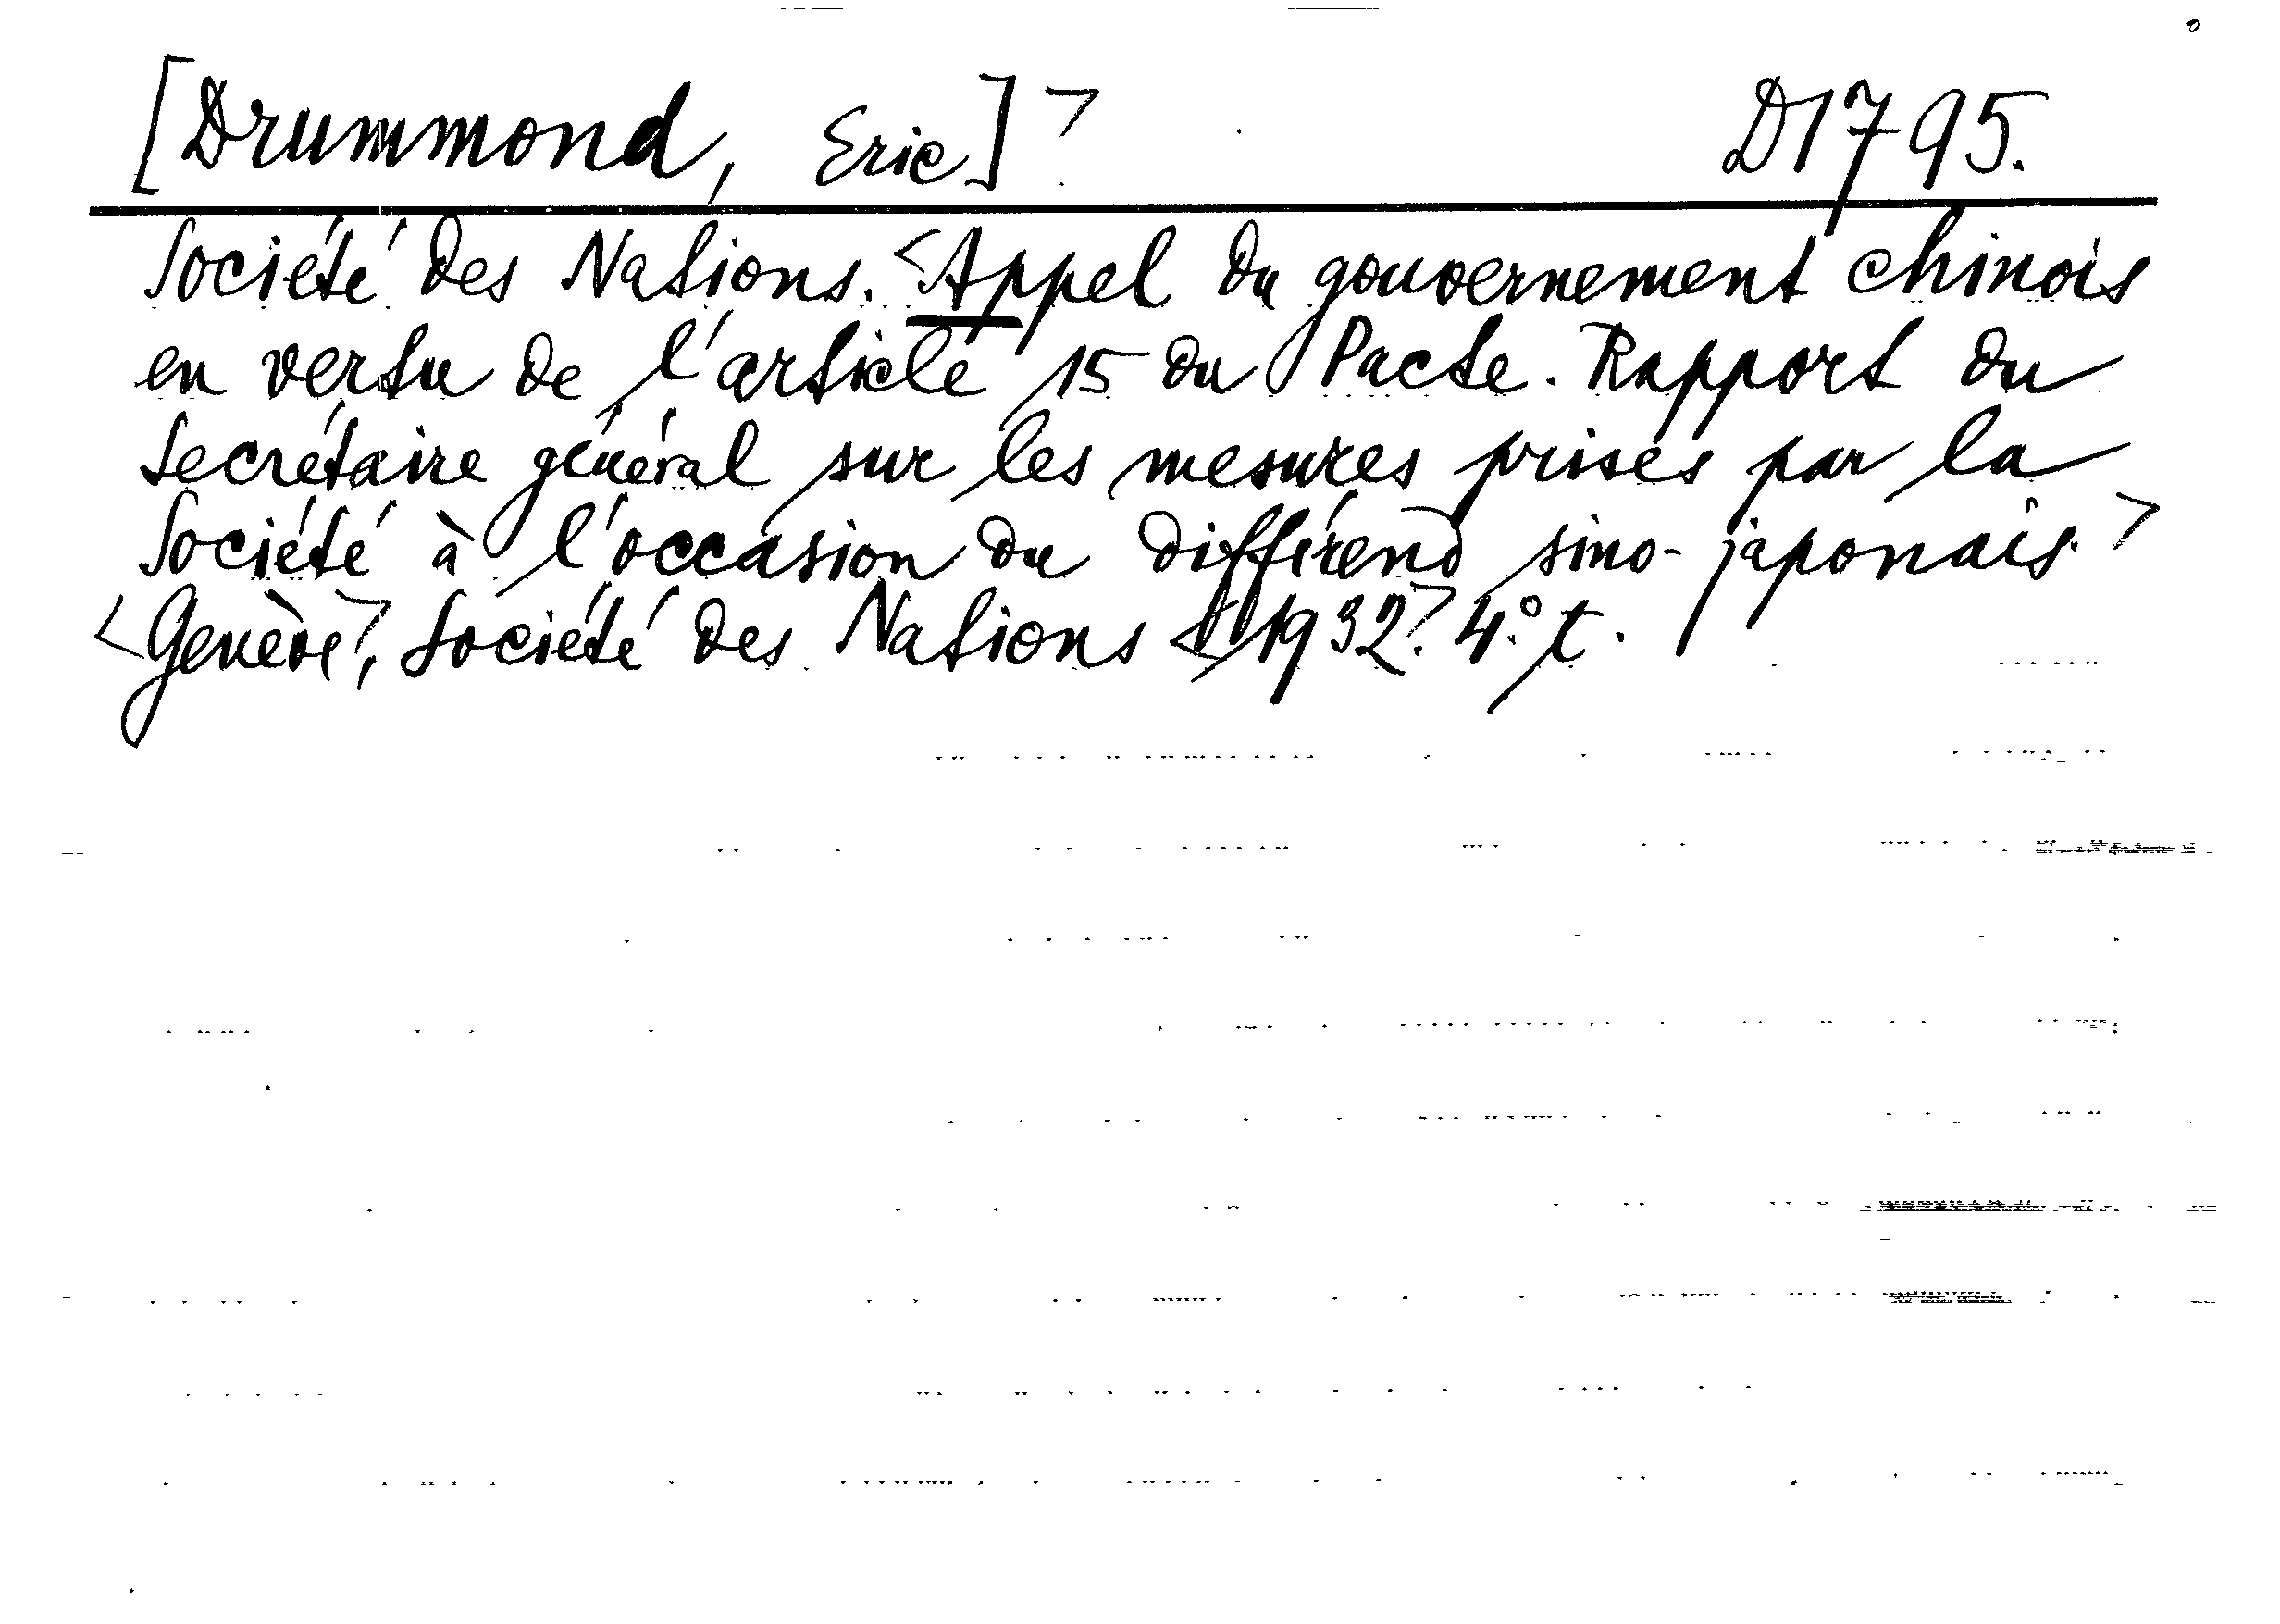 [Drummond, Eric]> D1795.
Société des Nations. <Appel du gouvernement chinois
en vertu de l'article 15 du Pacte. Rapport du
Secrétaire général sur les mesures prises par la
Société à l'occasion du différend sino-japonais.>
<Genève>, Société des Nations <1932>. 4:° t.